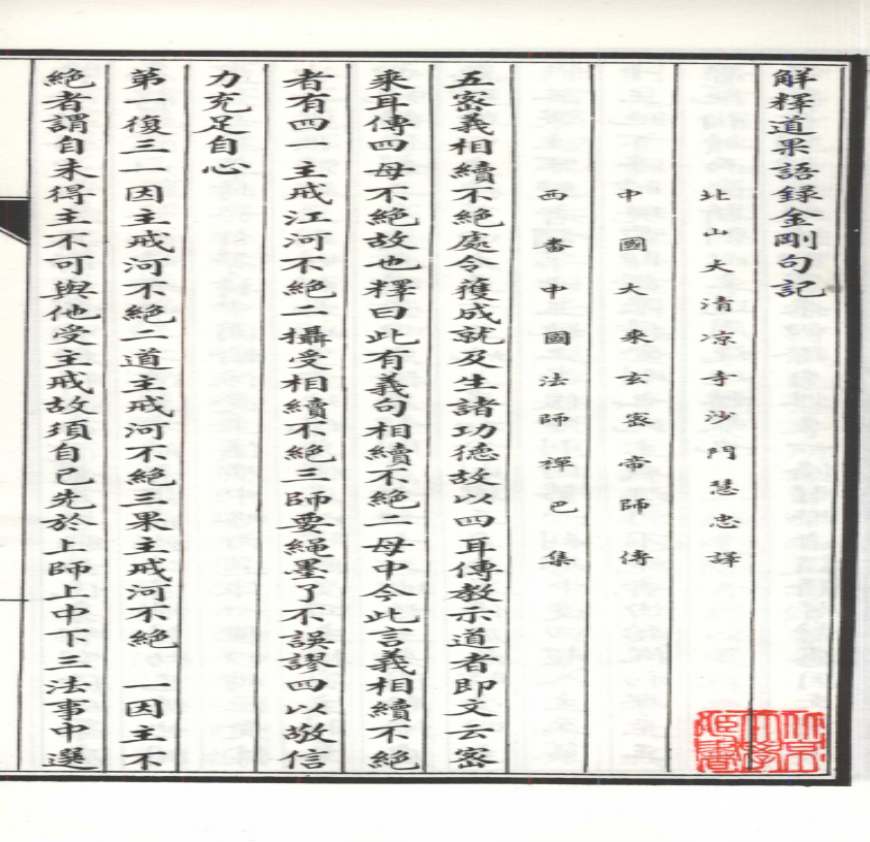 解釋道果語録金剛句記
北山大清凉寺沙門慧忠譯
中國大乘玄密帝師傳
西番中國法師禪巴集
五密義相續不絕處令獲成就及生諸功德故以四耳傳教示道者即文云密
來耳傳四母不絕故也釋曰此有義句相續不絕二母中今此言義相續不絕
者有四一主戒江河不絕二攝受相續不絕三師要繩墨了不誤謬四以敬信
力充足自心
第一復三一因主戒河不絕二道主戒河不絕三果主戒河不絕　一因主不
絕者謂自未得主不可與他受主戒故須自己先於上師上中下三法事中選